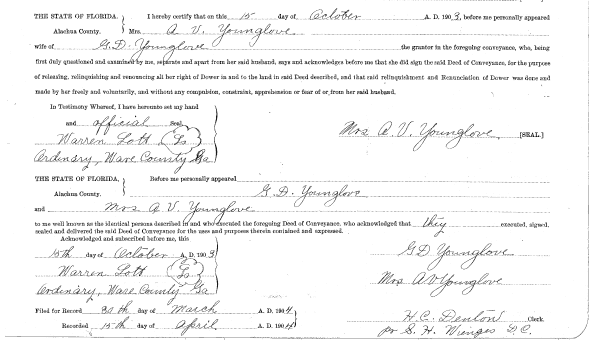 THE STATE OF FLORIDA, } I hereby certify that on this 15 day of October A. D. 1903, before me personally appeared
Alachua County. Mrs. A V. Younglove
wife of G. D. Younglove the grantor in the foregoing conveyance, who, being
first duly questioned and examined by me, separate and apart from her said husband, says and acknowledges before me that she did sign the said Deed of Conveyance, for the purpose
of releasing, relinquishing and renouncing all her right of Dower in and to the land in said Deed described, and that said relinquishment and Renunciation of Dower was done and
made by her freely and voluntarily, and without any compulsion, constraint, apprehension or fear of or from her said husband.
In Testimony Whereof, I have hereunto set my hand
and official Seal
Warren Lott
Ordinary, Ware County Ga
Mrs A. V. Younglove, [SEAL.]
THE STATE OF FLORIDA, } Before me personally appeared
Alachua County. G. D. Younglove
and Mrs A V. Younglove
to me well known as the identical persons described in and who executed the foregoing Deed of Conveyance, who acknowledged that they executed, signed,
sealed and delivered the said Deed of Conveyance for the uses and purposes therein contained and expressed.
Acknowledged and subscribed before me, this
15th day of October A. D. 1903
Warren Lott
Ordinary, Ware County Ga
G D Younglove
Mrs A V Younglove
Filed for Record 30th day of March A. D. 1904
Recorded 15th day of April A. D. 1904
H. C. Denton Clerk.
pr S. H. Wienges D. C.